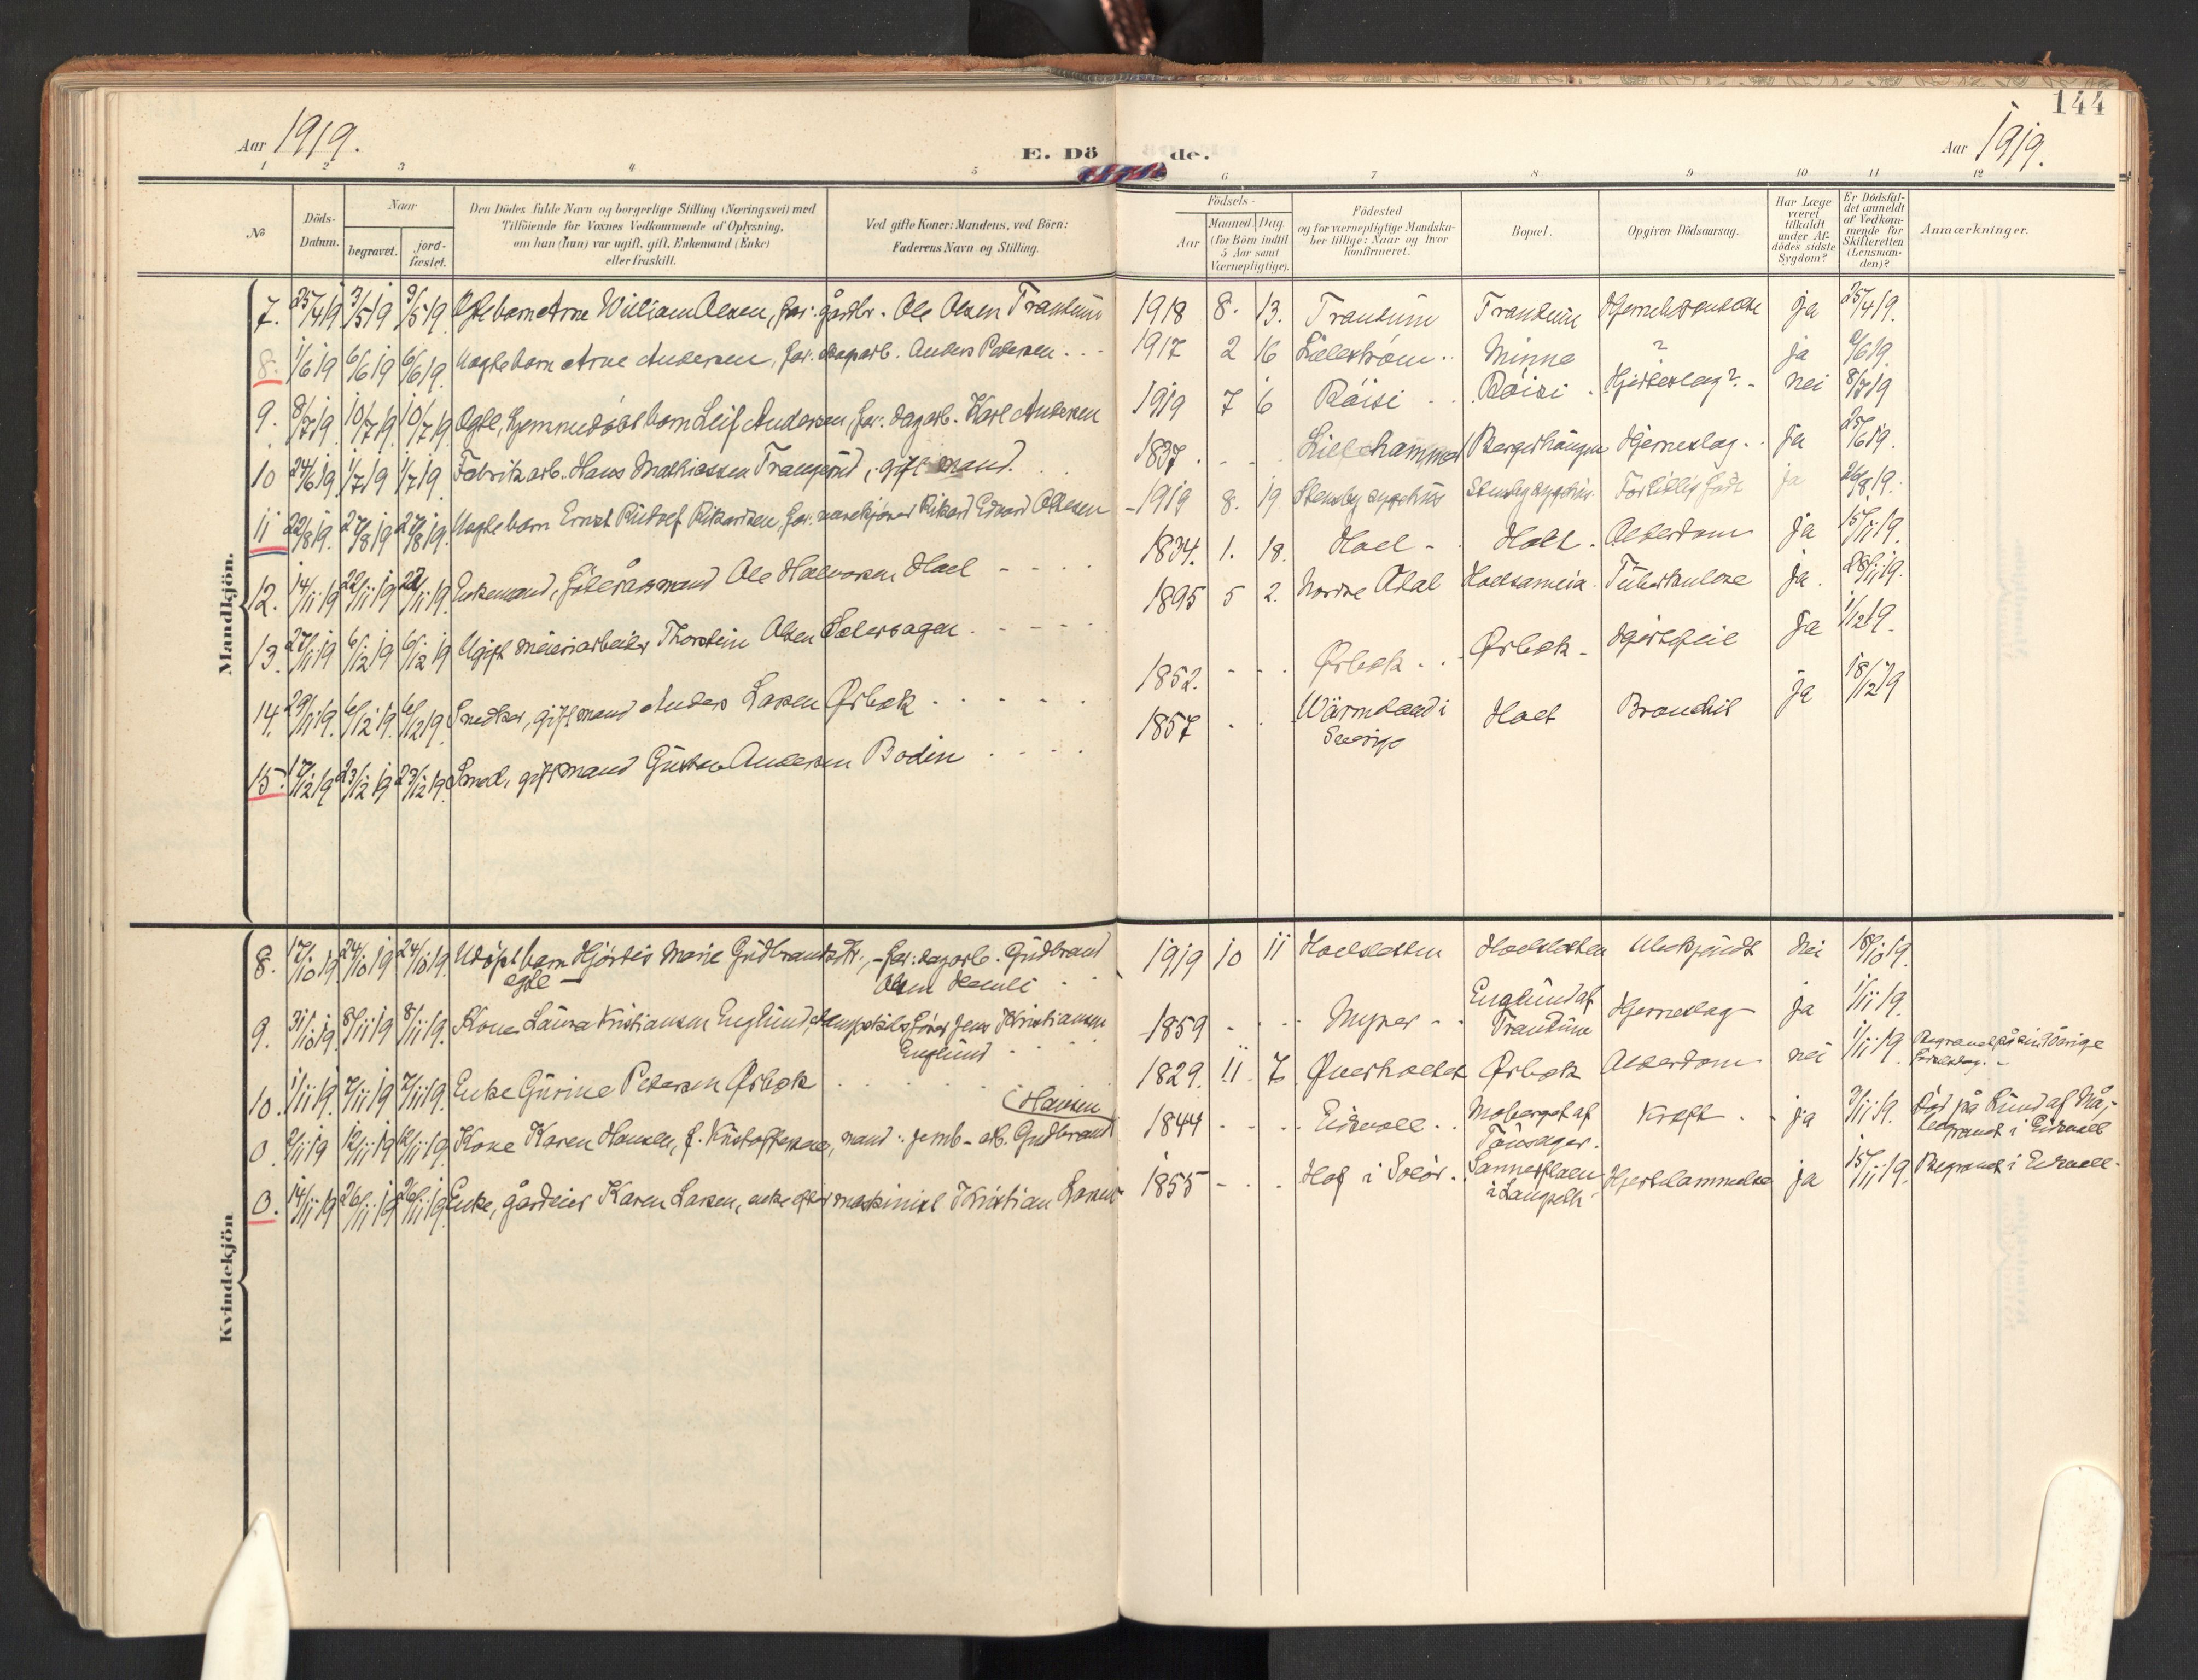 144
Aar 1919.
E. Dö de.
Aar 1919.
1 2 3 4 5 6 7 8 9 10 11 12
No
Döds-Datum.
Naar
begravet.
jord-fæstet.
Den Dödes fulde Navn og borgerlige Stilling (Næringsvei) med
Tilföiende for Voxnes Vedkommende af Oplysning,
om han (hun) var ugift, gift, Enkemand (Enke)
eller fraskilt.
Ved gifte Koner: Mandens, ved Börn:
Faderens Navn og Stilling.
Födsels-
Aar
Maaned. Dag.
(for Börn indtil
5 Aar samt
Værnepligtige).
Födested
og for værnepligtige Mandska-
ber tillige: Naar og hvor
konfirmeret.
Bopæl.
Opgiven Dödsaarsag.
Har Læge
været
tilkaldt
under Af-
dödes sidste
Sygdom?
Er Dödsfal-
det anmeldt
af Vedkom-
mende for
Skifteretten
(Lensman-
den)?
Anmærkninger.
Mandkjön.
7. 25/4 19 3/5 19 3/5 19 Egte barn Arne William Olsen, far: gårdbr. Ole Olsen Trandum 1918 8. 13. Trandum Trandum ja 25/4 19.
8. 1/6 19 6/6 19 6/6 19. Uegte barn Arne Andersen, far: Anders Pedersen 1917 2 16 Lillestrøm Minne ? ja 2/6 19.
9. 8/7 19. 10/7 19. 10/7 19 Egte, hjemmedøbt barn Leif Andersen, far: dagarb. Karl Andersen 1919 7 6 Røisi Røisi Hjerteslag? nei 8/7 19
10 24/6 19 1/7 19 1/7 19. Fabrikarb. Hans Mathiassen, gift mand. 1837 Lillehammer Hjerneslag ja 25/6 19.
11 22/8 19. 27/8 19 27/8 19. Uegte barn Ernst Rudolf Rikardsen, far: Rikard Edvard 1919 8. 19 Stensby sygehus Stensby sygehus For tidlig født ja 26/8 19.
12. 14/11 19 22/11 19 22/11 19. Enkemand, føderådsmand Ole Halvorsen Holt 1834. 1. 18. Holt Holt Alderdom ja 15/11 19.
13. 27/11 19 6/12 19 6/12 19 Ugift meieriarbeider Thorstein Olsen Sætersagen 1895 5 2. Nordre Odal Tuberkulose ja. 28/11 19.
14. 29/11 19. 6/12 19. 6/12 19. Snedker, gift mand Anders Larsen Ørbæk 1852. Ørbæk Ørbæk Hjertefeil ja 1/12 19.
15. 17/12 19 23/12 19 23/12 19. Smed, gift mand Gustav Andersen Bodin 1857 Wärmland i
Sverige Holt Bronchit ja 18/12 19
Kvindekjön
8. 17/10 19. 24/10 19 24/10 19. Udøpt barn Hjørdis Marie Gudbrandsdtr., far: dagarb. Gudbrand
egte Olsen 1919 10 11 Holtsletten Holtsletten Ubekjendt Nei 18/10 19.
9. 31/10 19. 8/11 19 8/11 19. Kone Laura Kristiansen Englund, Jens Kristiansen
Englund 1859 Myrer Englund af
Trandum Hjerneslag ja 1/11 19.
10. 1/11 19. 7/11 19 7/11 19. Enke Gurine Petersen Ørbæk 1829. 11 7. Ørbæk Alderdom nei 1/11 19.
(Hansen
0. 2/11 19 12/11 19 12/11 19. Kone Karen Hansen, f. Kristoffersen, mand: jernb-arb. Gudbrand 1844 Eidsvoll Moberget af
Kræft ja 3/11 19. Død på Sund af
begravet i Eidsvoll
0. 14/11 19 26/11 19 26/11 19. Enke, gårdeier Karen Larsen, enke efter maskinist Kristian Larsen 1855 Hof i Solør Hjertelammelse ja 15/11 19. Begravet i Eidsvoll.